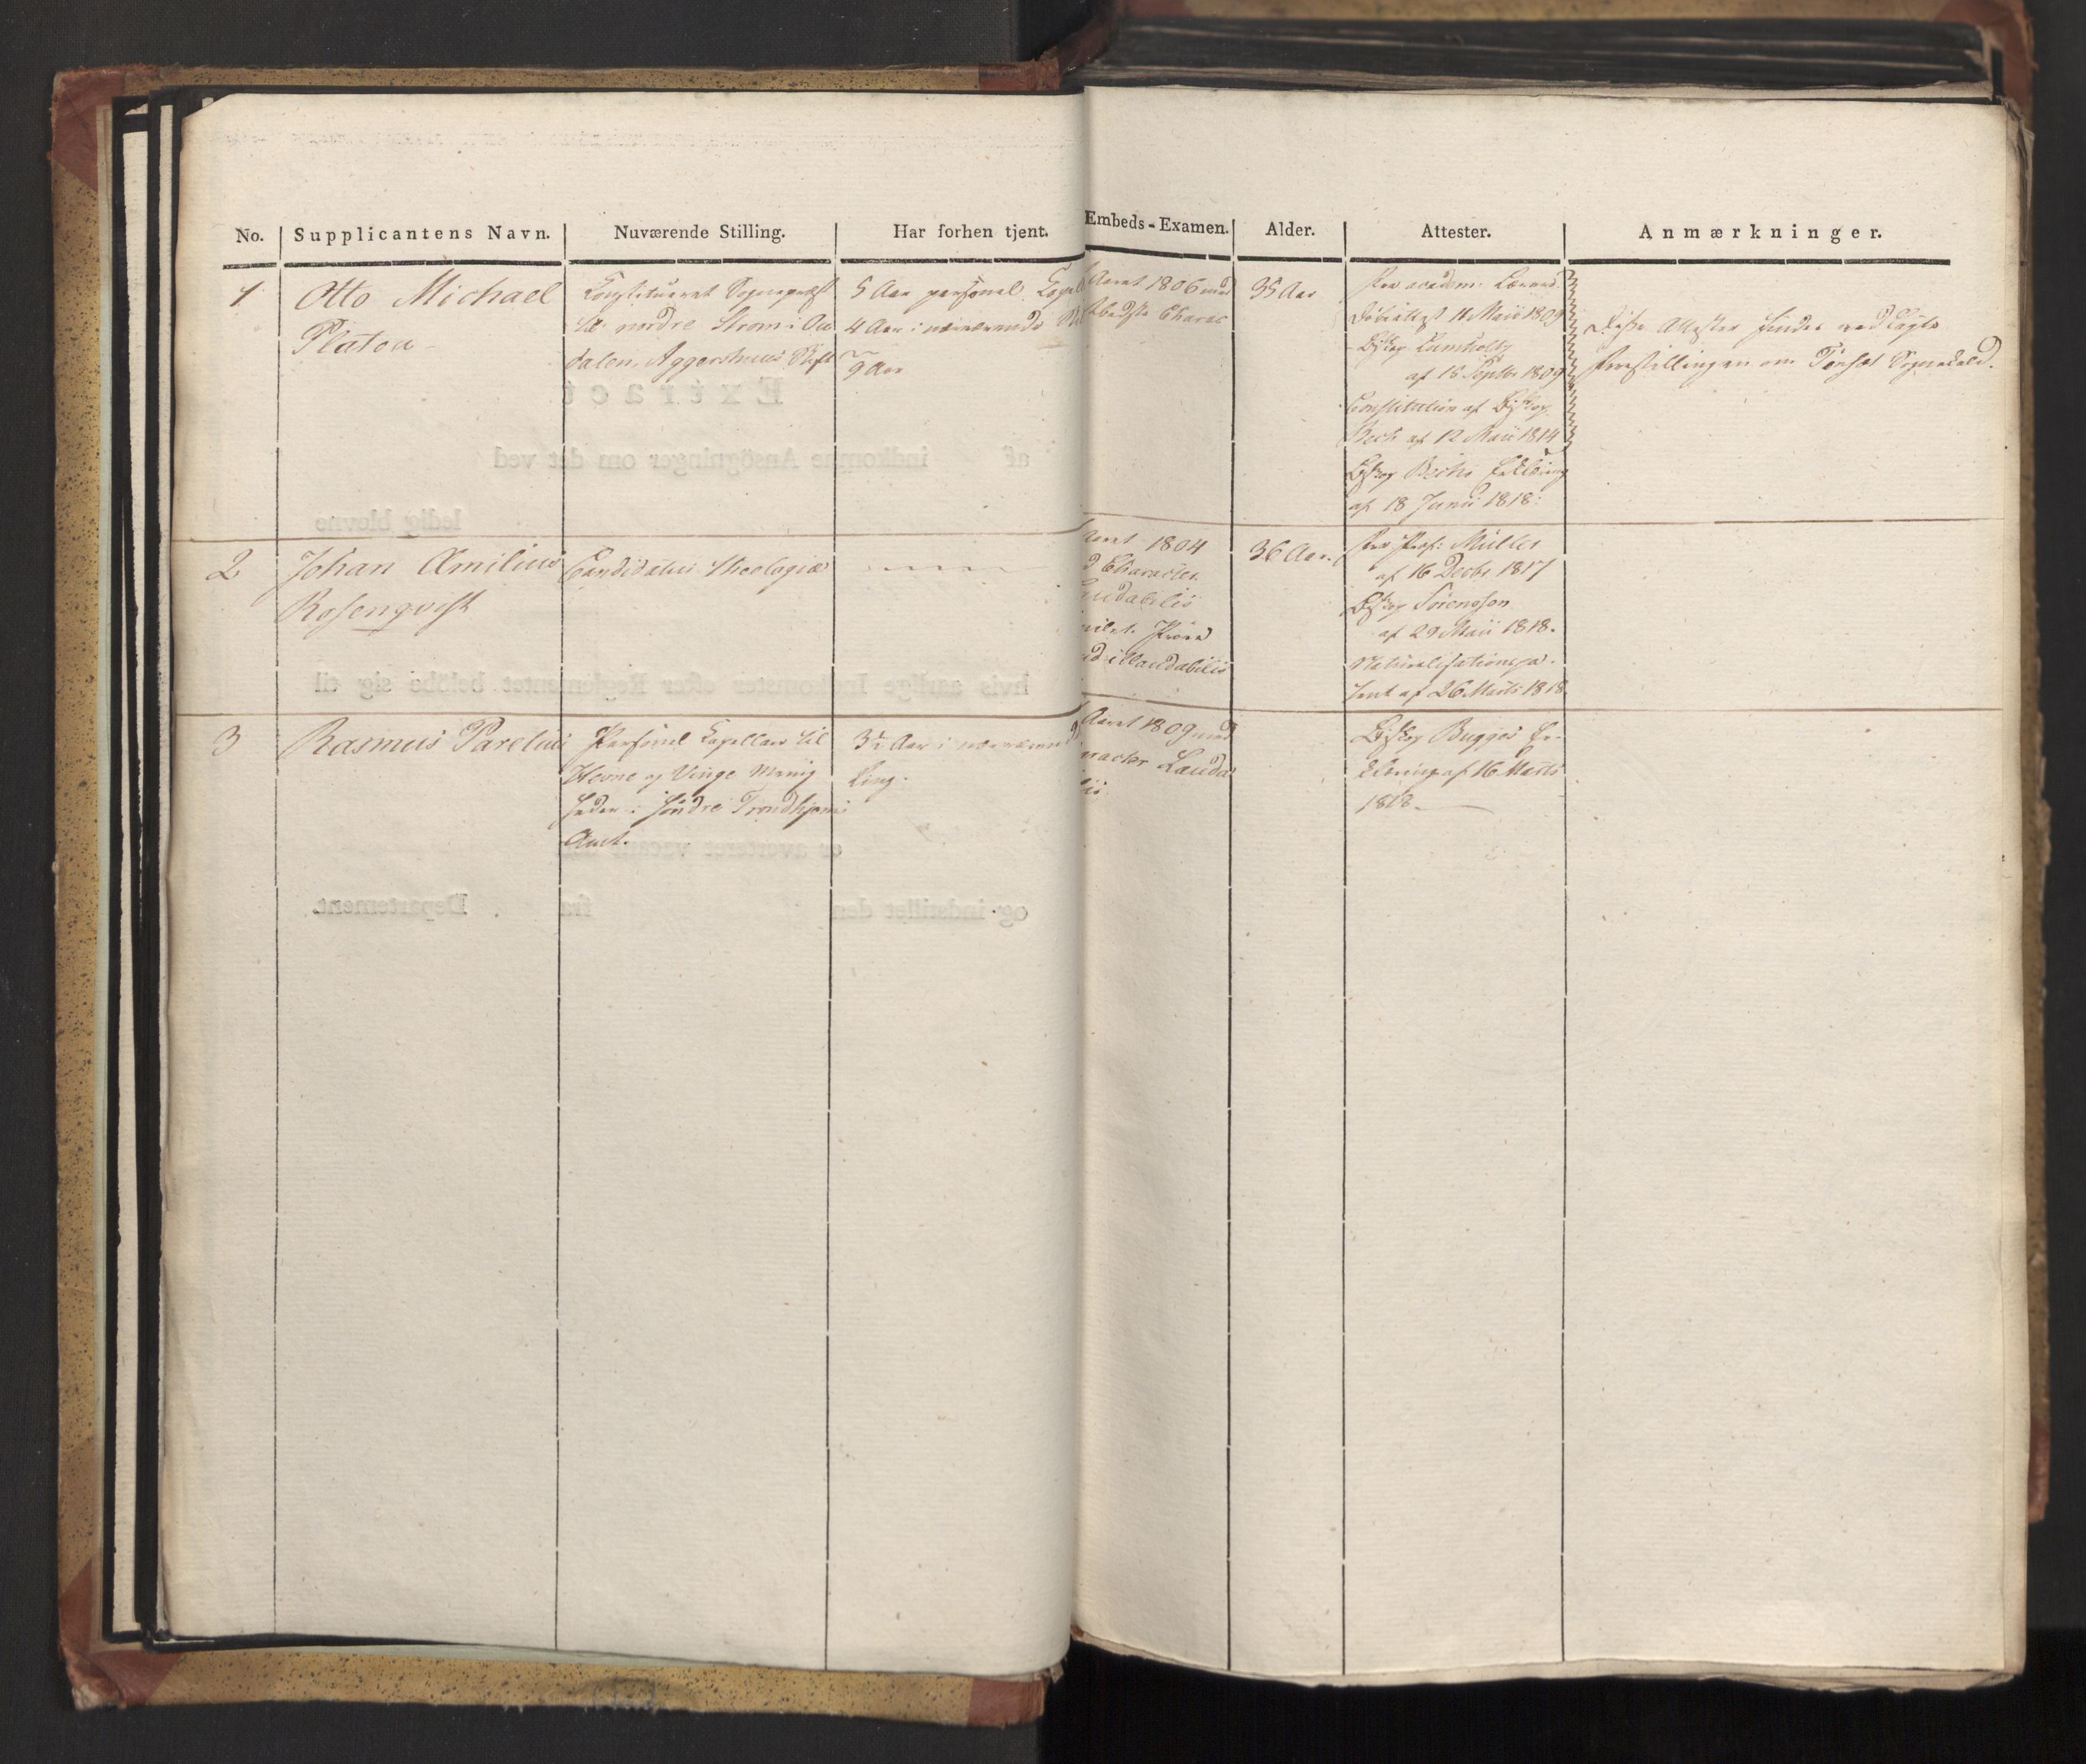 No.
Supplicantens Navn.
Nuværende Stilling.
Har forhen tjent.
Embeds-Examen.
Alder.
Attester.
Anmærkninger.
1
Otto Michael
Platou
Constitueret Sognepræst
til nordre Strøm i Oes
dalen, Aggershuus Stift
5 Aar personel Capel
4 Aar i nærværende
9 Aar
Aaret 1806 med
bedste Charac
35 Aar
fra academ: Lærere
11 Maii 1809
Biskop
af 15 Septbr 1809
Constitution af Biskop
Bech af 12 Maii 1814
Biskop Bechs Erklæring
af 18 Junii 1818.
Disse Attester findes vedlagte
Forestillingen om Tønset Sognekald.
2
Johan Æmilius
Rosenqvist
Candidatus Theologiæ
Aaret 1804
d Character
audabilis
Prøve
d: Haudabilis
36 Aar.
fra Prof: Müller
af 16 Decbr 1817
Biskop Sørenssen
af 29 Maii 1818.
Naturalisationspa-
tent af 26 Marts 1818.
3
Rasmus Parelius
Personel Capellan til
Hevne og Vinge Menig
heder i søndre Trondhjems
Amt.
3½ Aar i nærværende
Aaret 1809 med
aracter Lauda
lis
Biskop Bugges Er-
klæring af 16 Marts
1818.
Extract
af indkomne Ansøgninger om det ved
ledig blevne
hvis aarlige Indkomster efter Reglementet beløbe sig til
er averteret vacant den
og indstillet den fra Departement.